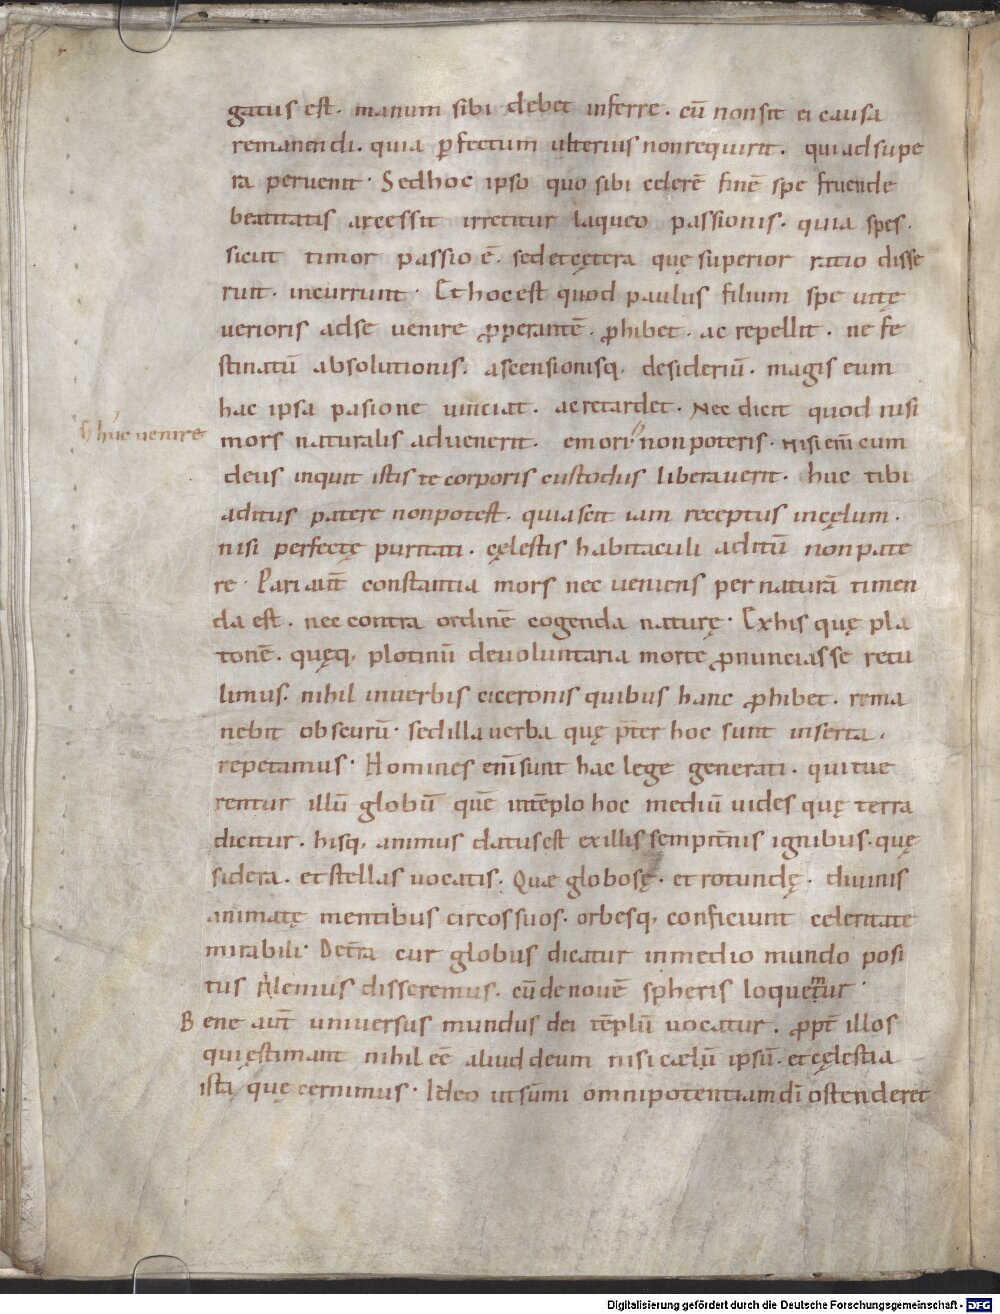 gatus est. manum sibi debet inferre. cū non sit ei causa
remanendi. quia ꝑfectum ulterius non requirit. qui ad supe
ra peruenit. Sed hoc ipso quo sibi celerē finē spe fruende
beatitatis arcessit irretitur laqueo passionis. quia spes.
sicut timor passio ē. sed et cętera quę superior ratio disse
ruit. incurrunt. Et hoc est quod paulus filium spe uitę
uerioris ad se uenire ꝓperantē. ꝓhibet. ac repellit. ne fe
stinatū absolutionis. ascensionisq. desideriū. magis eum
hac ipsa pasione uinciat. ac retardet. Nec dicit quod nisi
huc uenire
mors naturalis aduenerit. emori non poteris. Nisi eni cum
deus inquit istis te corporis custodiis liberauerit. huc tibi
aditus patere non potest. quia scit iam receptus in cęlum.
nisi perfectę puritati. cęlestis habitaculi aditū non pate
re. Pari aut̄ constantia mors nec ueniens per naturā timen
da est. nec contra ordinē cogenda naturę. Ex his quę pla
tonē. quęq. plotinū de uoluntaria morte ꝓnunciasse retu
limus. nihil in uerbis ciceronis quibus hanc ꝓhibet. rema
nebit obscurū. sed illa uerba quę pr̄ter hoc sunt inserta.
repetamus. Homines eni sunt hac lege generati. qui tue
rentur illū globū quē in tēplo hoc mediū uides quę terra
dicitur. hisq. animus datus est ex illis sempit̄nis ignibus. quę
sidera. et stellas uocatis. Quae globosę. et rotundę. diuinis
animatę mentibus circos suos. orbesq. conficiunt celeritate
mirabili. De t̄ra cur globus dicatur in medio mundo posi
tus plenius disseremus. cū de nouē spheris loquemur
Bene aut̄ uniuersus mundus dei tēplū uocatur. ꝓpt̄ illos
qui ęstimant nihil eē aliud deum nisi caelū ipsū. et cęlestia
ista quę cernimus. Ideo ut sūmi omnipotentiam di ostenderet
Digitalisierung gefördert durch die Deutsche Forschungsgemeinschaft - DFG